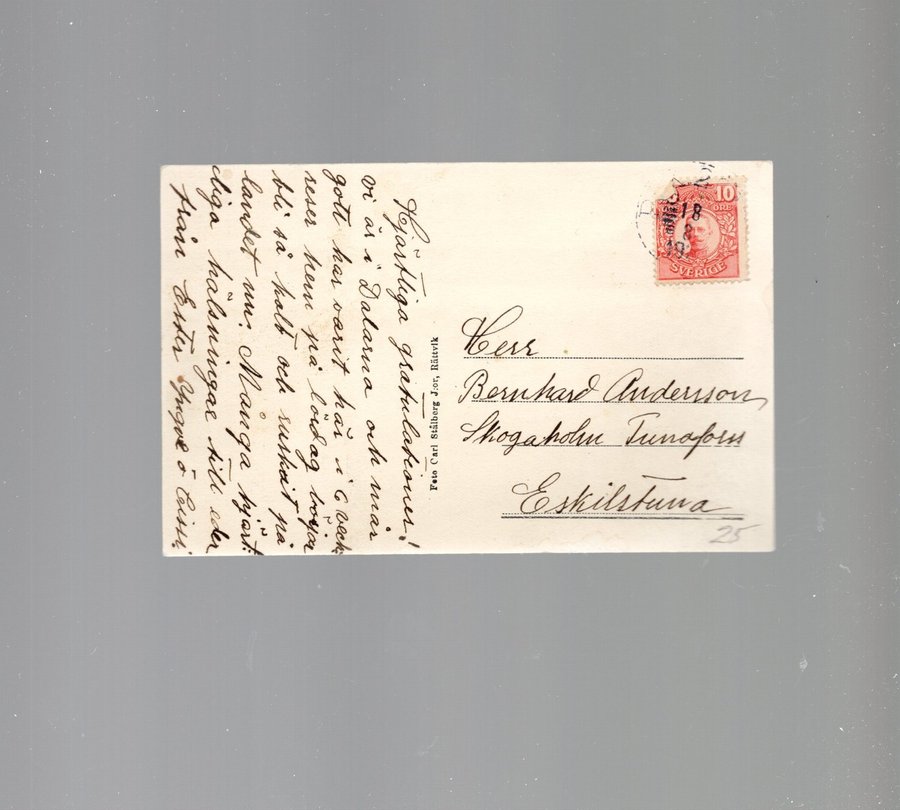 Hjärtliga gratulationer!
vi är i Dalarna och mår
gott har varit här i 6 veck
reser hem på lördag börjar
bli så kallt och ruskit på
landet nu. Många hjärt:
liga hälsningar till eder
från Ester Yngve o
Foto Carl Stålberg J:or, Rättvik
10
ÖRE
SVERIGE
18
8
19
Herr
Bernhard Andersson
Skogaholm Tunafors
Eskilstuna
25